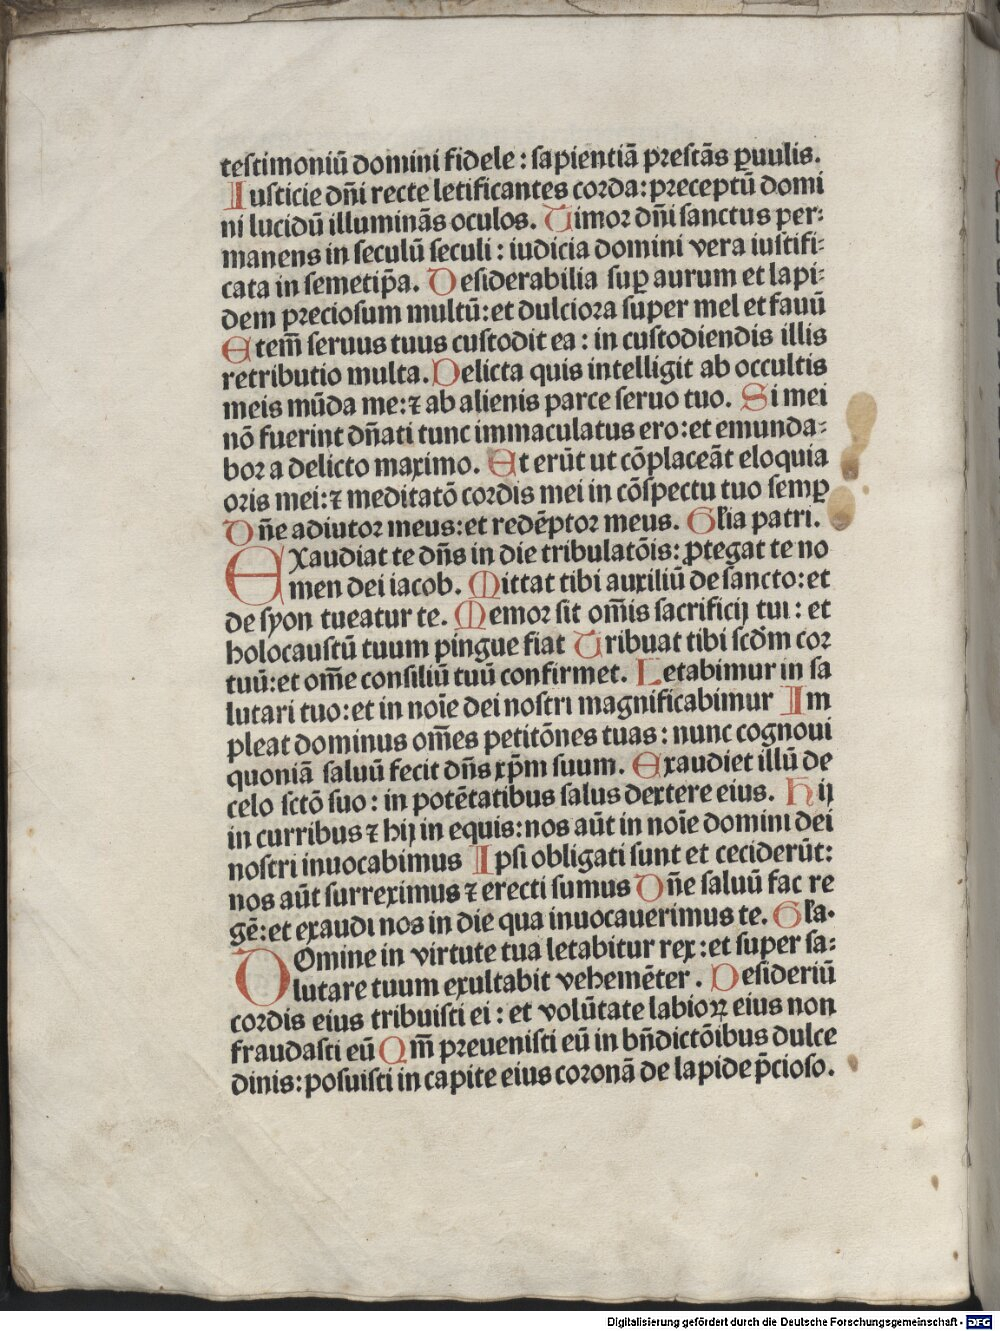 testimoniū domini fidele : sapientiā prestās ꝑuulis.
Iusticie dñi recte letificantes corda: preceptū domi
ni lucidū illuminās oculos. Timor dñi sanctus per⸗
manens in seculū seculi : iudicia domini vera iustifi⸗
cata in semetip̄a. Desiderabilia suꝑ aurum et lapi⸗
dem preciosum multū: et dulciora super mel et fauū
Etem̄ seruus tuus custodit ea : in custodiendis illis
retributio multa. Delicta quis intelligit ab occultis
meis mūda me: ⁊ ab alienis parce seruo tuo. Si mei
nō fuerint dn̄ati tunc immaculatus ero: et emunda⸗
bor a delicto maximo. Et erūt ut cōplaceāt eloquia
oris mei: ⁊ meditatō cordis mei in cōspectu tuo semꝑ
Dn̄e adiutor meus: et redēptor meus. Gl̄ia patri.
EXaudiat te dn̄s in die tribulatōis: ꝓtegat te no
men dei iacob. Mittat tibi auxiliū de sancto: et
de syon tueatur te. Memor sit om̄is sacrificij tui : et
holocaustū tuum pingue fiat Tribuat tibi scd̄m cor
tuū: et om̄e consiliū tuū confirmet. Letabimur in sa
lutari tuo: et in noīe dei nostri magnificabimur Im
pleat dominus om̄es petitōnes tuas : nunc cognoui
quoniā saluū fecit dn̄s xp̄m suum. Exaudiet illū de
celo sctō suo : in potētatibus salus dextere eius. Hij
in curribus ⁊ hij in equis: nos aūt in noīe domini dei
nostri inuocabimus Ipsi obligati sunt et ceciderūt:
nos aūt surreximus ⁊ erecti sumus Dn̄e saluū fac re
gē: et exaudi nos in die qua inuocauerimus te. Gl̄a.
DOmine in virtute tua letabitur rex : et super sa⸗
lutare tuum exultabit vehemēter . Desideriū
cordis eius tribuisti ei : et volūtate labioꝝ eius non
fraudasti eū Qm̄ preuenisti eū in bn̄dictōibus dulce
dinis: posuisti in capite eius coronā de lapide p̄cioso.
Digitalisierung gefördert durch die Deutsche Forschungsgemeinschaft - DFG